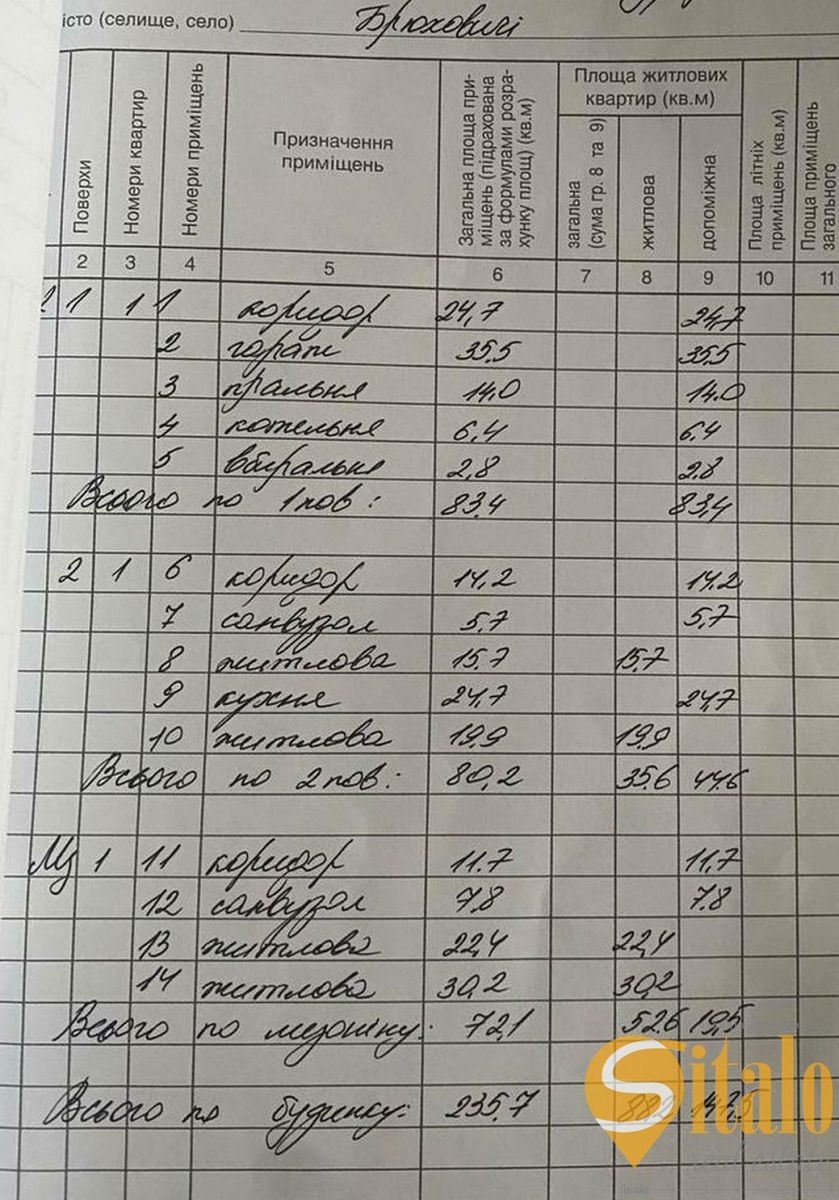 істо (селище, село) Брюховичі
Поверхи
Номери квартир
Номери приміщень
Призначення приміщень
Загальна площа при-
міщень (підрахована
за формулами розра-
хунку площ) (кв.м)
Площа житлових
квартир (кв.м)
загальна
(сума гр. 8 та 9)
житлова
допоміжна
Площа літніх
приміщень (кв.м)
Площа приміщень
загального
2 3 4 5 6 7 8 9 10 11
1 1 1 коридор 24,7 24,7
2 гараж 35.5 35.5
3 пральня 14.0 14.0
4 котельня 6,4 6.4
5 вбиральня 2,8 2.8
Всього по 1 пов: 83.4 83,4
2 1 6 коридор 14,2 14.2
7 санвузол 5,7 5,7
8 житлова 15.7 15.7
9 кухня 24,7 24,7
10 житлова 19,9 19.9
Всього по 2 пов: 80,2 35.6 44.6
Мz 1 11 коридор 11.7 11,7
12 санвузол 7.8 7.8
13 житлова 22,4 22,4
14 житлова 30,2 30,2
Всього по мезоніну: 72,1 52.6 19,5
Всього по будинку: 235.7 88.2 147,5
Sitalo